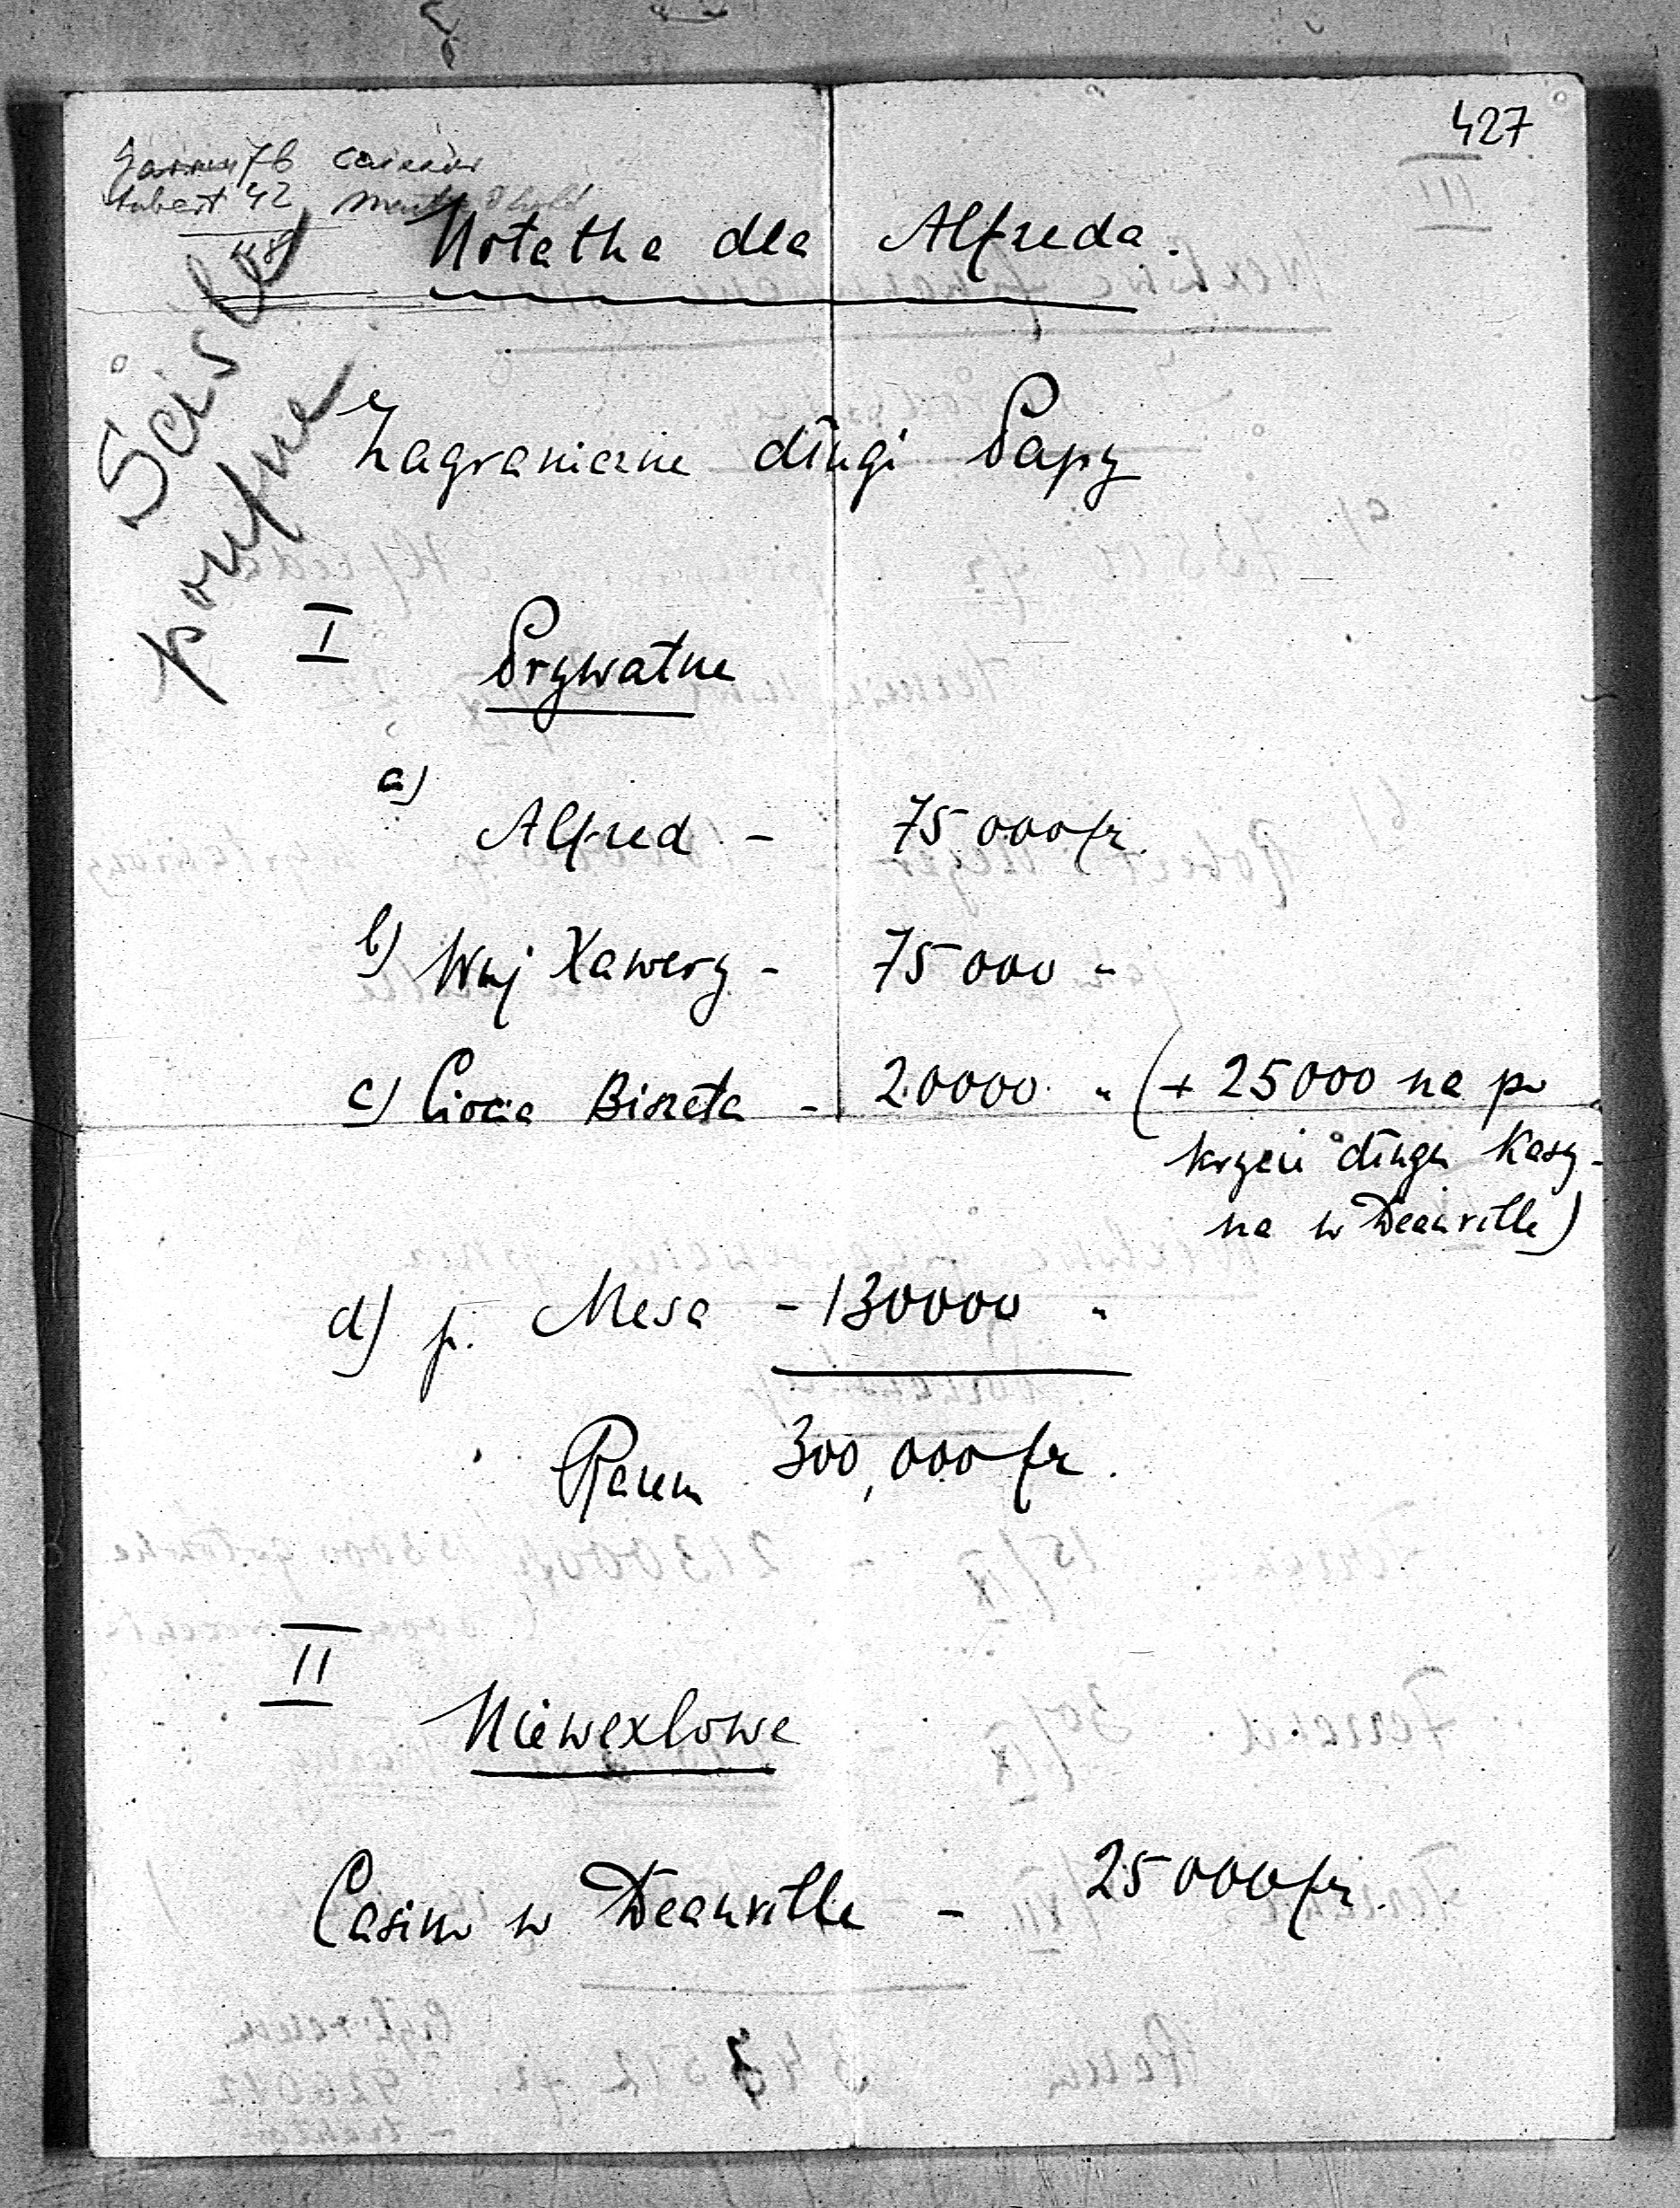 427
76
42
Notatka dla Alfreda.
Ściśle
poufne
Zagraniczne długi Papy
I
Prywatne
a)
Alfred - 75 000 fr.
b) Wuj Xawery - 75 000 "
c) Ciocia Biszeta - 20000 " (+ 25000 na po
krycie długu Kasy-
na w Deauville)
d) p. Mesa - 130000 "
Razem 300,000 fr.
II
Niewexlowe
Casino w Deauville - 25 000 fr.